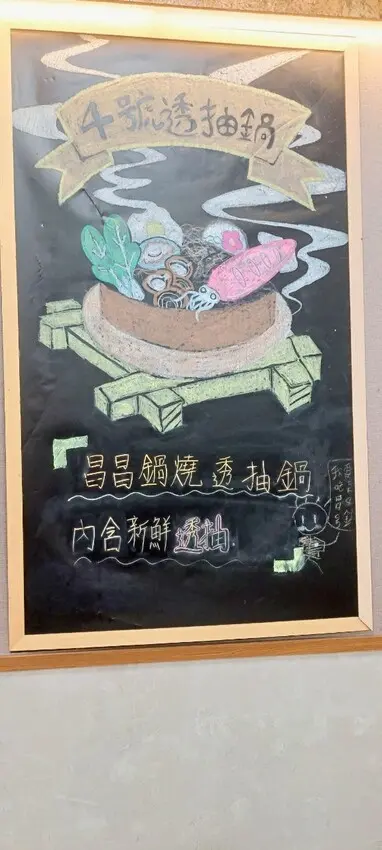 4號透抽鍋
昌昌鍋燒透抽鍋
內含新鮮透抽